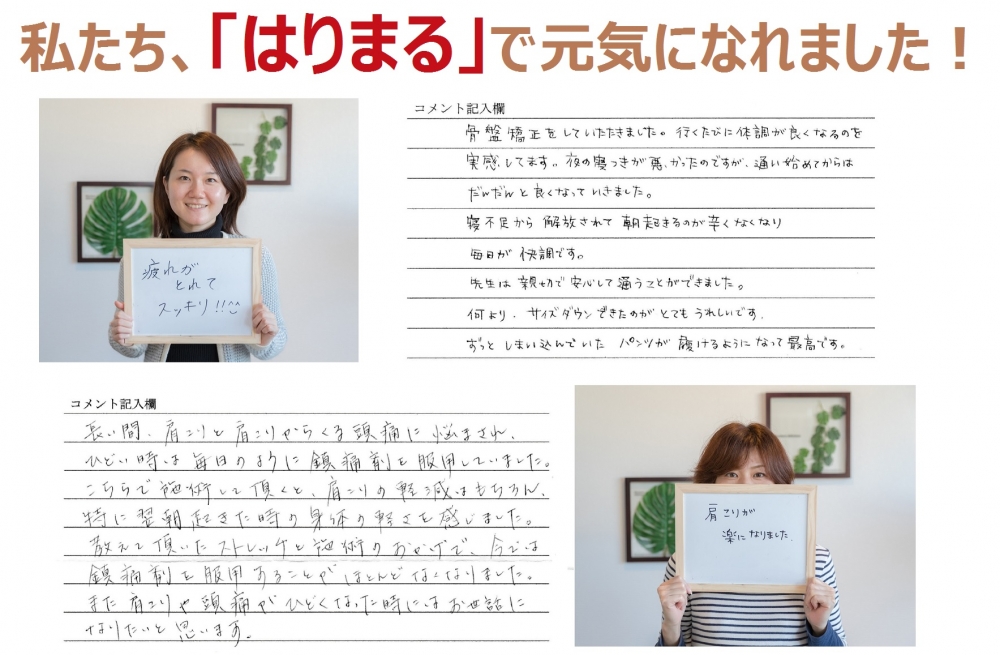 私たち、「はりまる」で元気になれました！
コメント記入欄
骨盤矯正をしていただきました。行くたびに体調が良くなるのを
実感してます。夜の寝つきが悪かったのですが、通い始めてからは
だんだんと良くなっていきました。
寝不足から解放されて朝起きるのが辛くなくなり
毎日が快調です。
先生は親切で安心して通うことができました。
何より、サイズダウンできたのがとてもうれしいです。
ずっとしまい込んでいたパンツが履けるようになって最高です。
疲れが
とれて
スッキリ!!
コメント記入欄
長い間、肩こりと肩こりからくる頭痛に悩まされ、
ひどい時は毎日のように鎮痛剤を服用していました。
こちらで施術して頂くと、肩こりの軽減はもちろん、
特に翌朝起きた時の身体の軽さを感じました。
教えて頂いたストレッチと施術のおかげで、今では
鎮痛剤を服用あることがほとんどなくなりました。
また肩こりや頭痛がひどくなった時にはお世話に
なりたいと思います。
肩こりが
楽になりました.